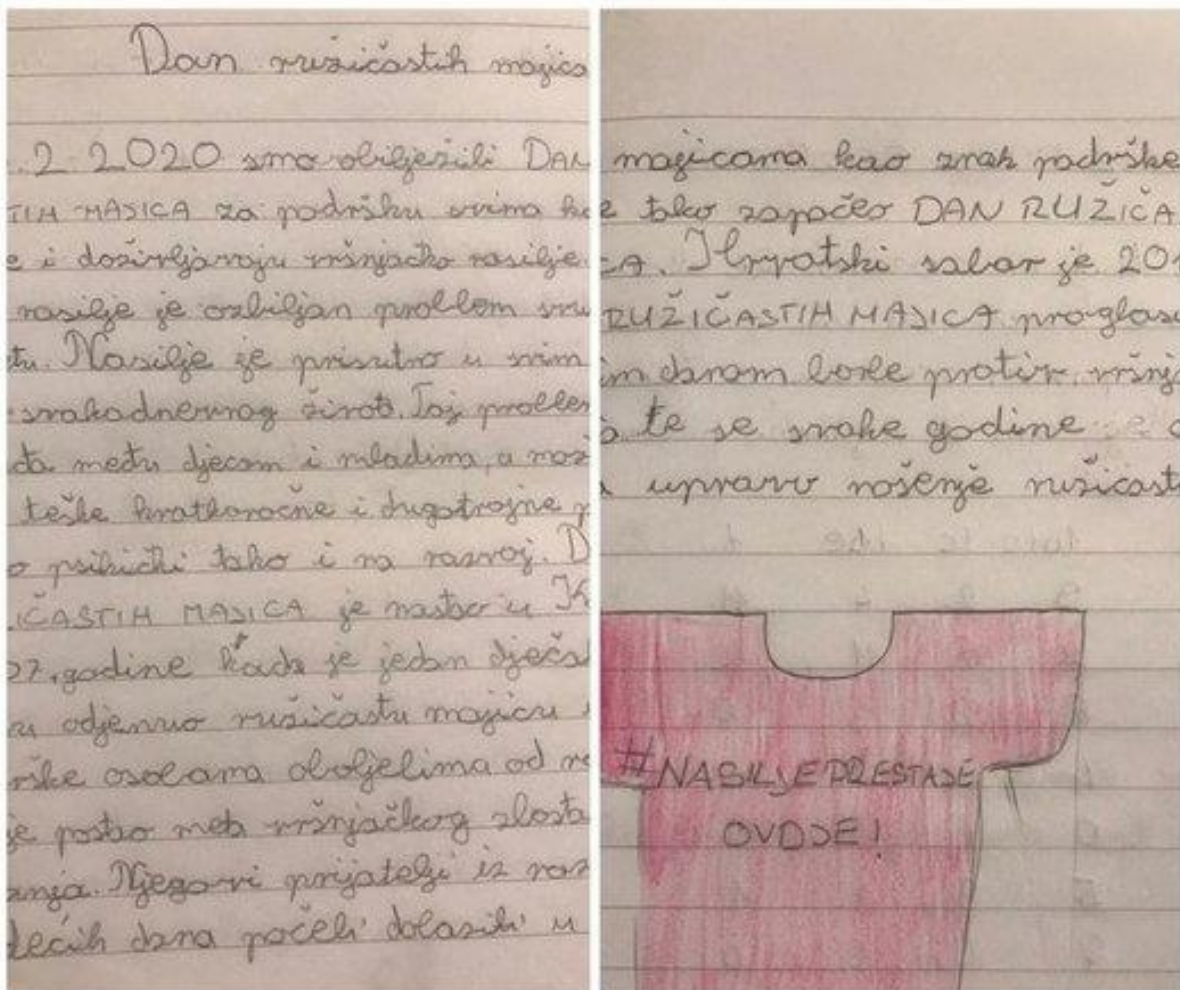 Dan ružičastih majica
.2.2020 smo obilježili DAN
TIH MAJICA za podršku svima ko
e i doživljavaju vršnjačko nasilje.
nasilje je ozbiljan problem svu
tu. Nasilje je prisutno u svim
svakodnevnog život. Taj problem
da među djecom i mladima, a mož
teške kratkoročne i dugotrajne p
o psihički tako i na razvoj. D
IČASTIH MAJICA je nastao u K
07. godine kada je jedan dječa
u odjenuo ružičastu majicu
rške osobama oboljelima od r
je postao meta vršnjačkog zlosta
anja. Njegovi prijatelji iz raz
dećih dana počeli dolaziti u
magicama kao znak podrške
e tako započeo DAN RUŽIČA
CA. Hrvatski sabor je 201
RUŽIČASTIH MAJICA proglasi
im danom borbe protiv vršnj
a te se svake godine
upravo nošenje ružičast
#NASILJE PRESTAJE
OVDJE!